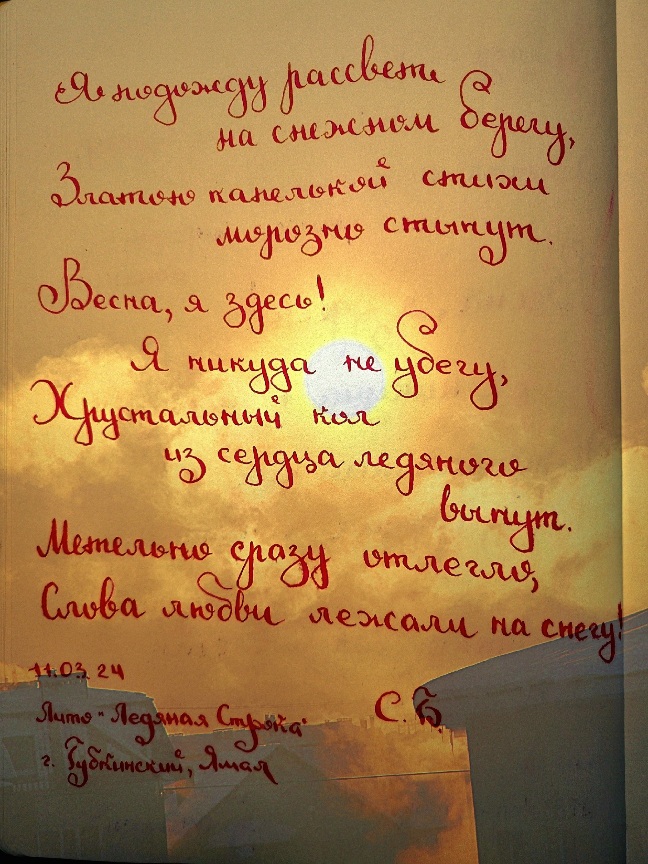 Я подожду рассвет
на снежном берегу,
Златою капелькой стихи
морозно стынут.
Весна, я здесь!
Я никуда не убегу,
Хрустальный кол
из сердца ледяного
вынут.
Метельно сразу отлегло,
Слова любви лежали на снегу!
11.03.24
Лито "Ледяная Строка"
С.Б.
г. Губкинский, Ямал